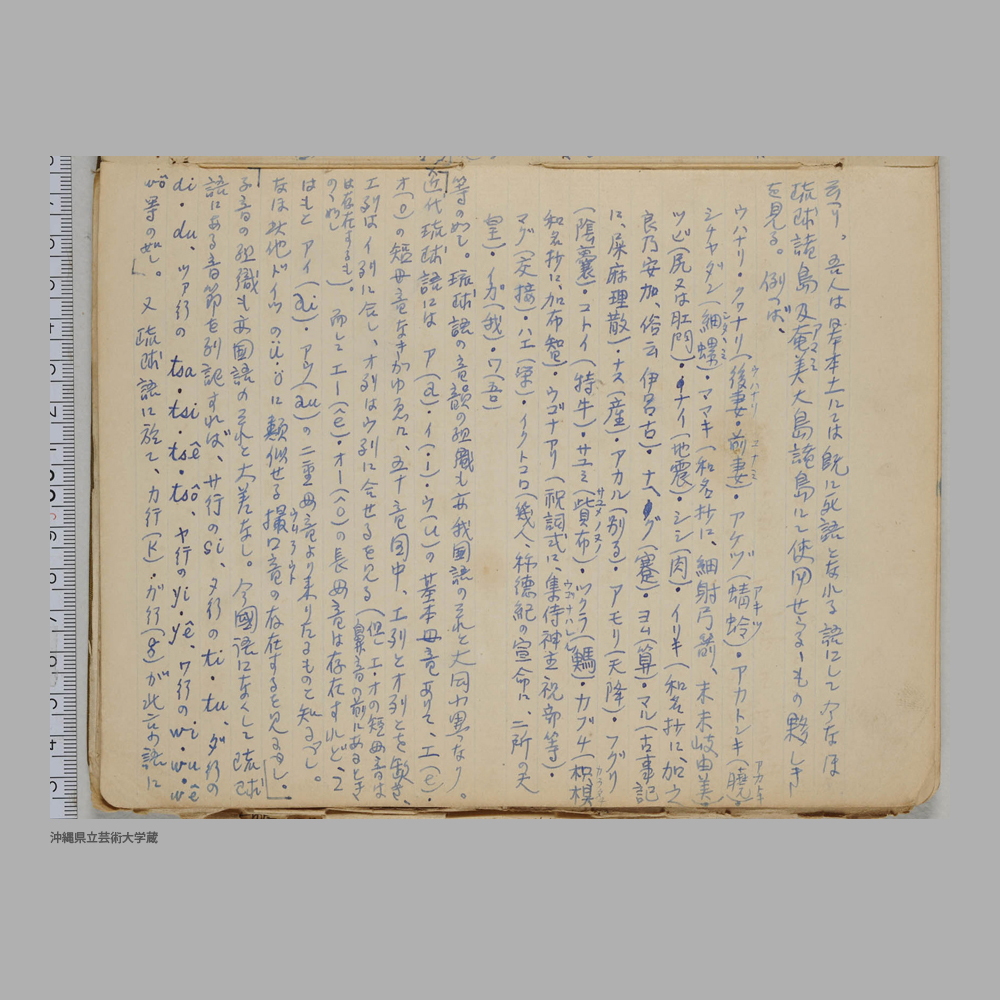 云へり。吾人は日本本土にては既に死語となれる語にして今なほ
琉球諸島及奄美大島諸島にて使用せらるゝもの夥しき
を見る。例へば、
ウハナリ・クワナリ(後妻・前妻)・アケヅ(蜻蛉)・アカトンキ(暁)・
シチャダン(細螺)・ママキ(和名抄に、細射弓箭、末末岐由美)・
ツビ(尻又は肛門)・ナイ(地震)・シシ(肉)・イリキ(和名抄に、加之
良乃安加、俗云伊呂古)・ナヘグ(蹇)・ヨム(算)・マル(古事記
に、屎麻理散)・ナス(産)・アカル(別る)・アモリ(天降)・フグリ
(陰嚢)・コトイ(特牛)・サユミ(貲布)・ツクラ()・カブチ(枳椇
和名抄に、加布智)・ウゴナアリ(祝詞式に、集侍神主祝部等)・
マグ(交接)・ハエ(栄)・イクトコロ(幾人、称徳紀の宣命に、二所の天
皇)・イガ(我)・ワ(吾)
等の如し。琉球語の音韻の組織も亦我国語のそれと大同小異なり。
近代琉球語には ア(a)・イ(i)・ウ(u)の基本母音ありて、エ(e)・
オ(o)の短母音なきがゆゑに、五十音図中、エ列とオ列とを欠き、
エ列はイ列に合し、オ列はウ列に合せるを見る(但し エ・オの短母音は
鼻音の前にあるとき
は存在するも)。而して エー(ê)・オー(ô)の長母音は存在すれど、こ
のêô
はもと アイ(ai)・アウ(au)の二重母音より来りたるものと知るべし。
なほ此他ドイツのü・öに類似せる撮口音の存在するを見るべし。
子音の組織も亦国語のそれと大差なし。今國語になくして琉球
語にある音節を列記すれば、サ行のsi、タ行のti・tu、ダ行の
di・du、ツァ行の tsa・tsi・tsê・tsô、ヤ行のyi・yê、ワ行のwi・wu・wê
wô 等の如し。」又 琉球語に於て、カ行(k)・ガ行(g)が此京語に
沖縄県立芸術大学蔵